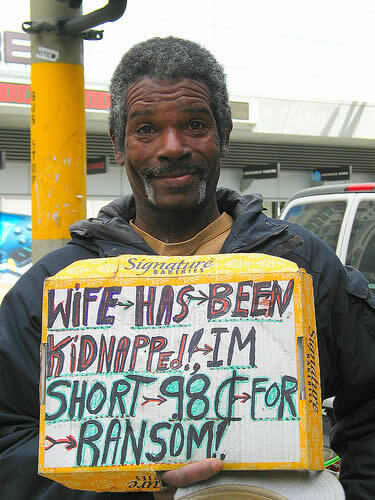 BUS STOP
Signature
WiFE→HAS→BEEN
KiDNAPPeD!!→IM
SHORT→98¢→FOR
→RANSOM!
Signature